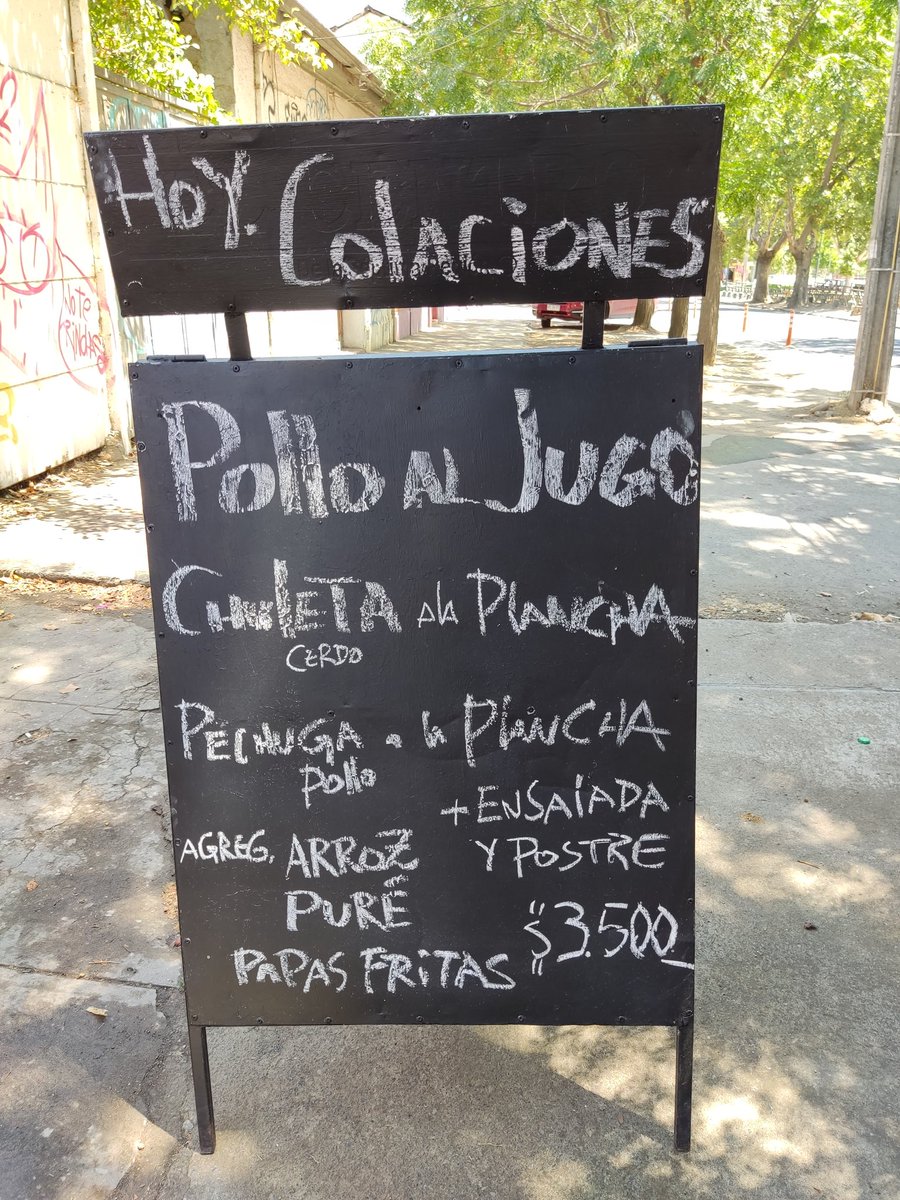 HOY. COLACIONES
POLLO AL JUGO
CHULETA a la PLANCHA
CERDO
PECHUGA a la PLANCHA
POLLO
+ ENSALADA
AGREG. ARROZ
Y POSTRE
PURÉ
$3.500
PAPAS FRITAS